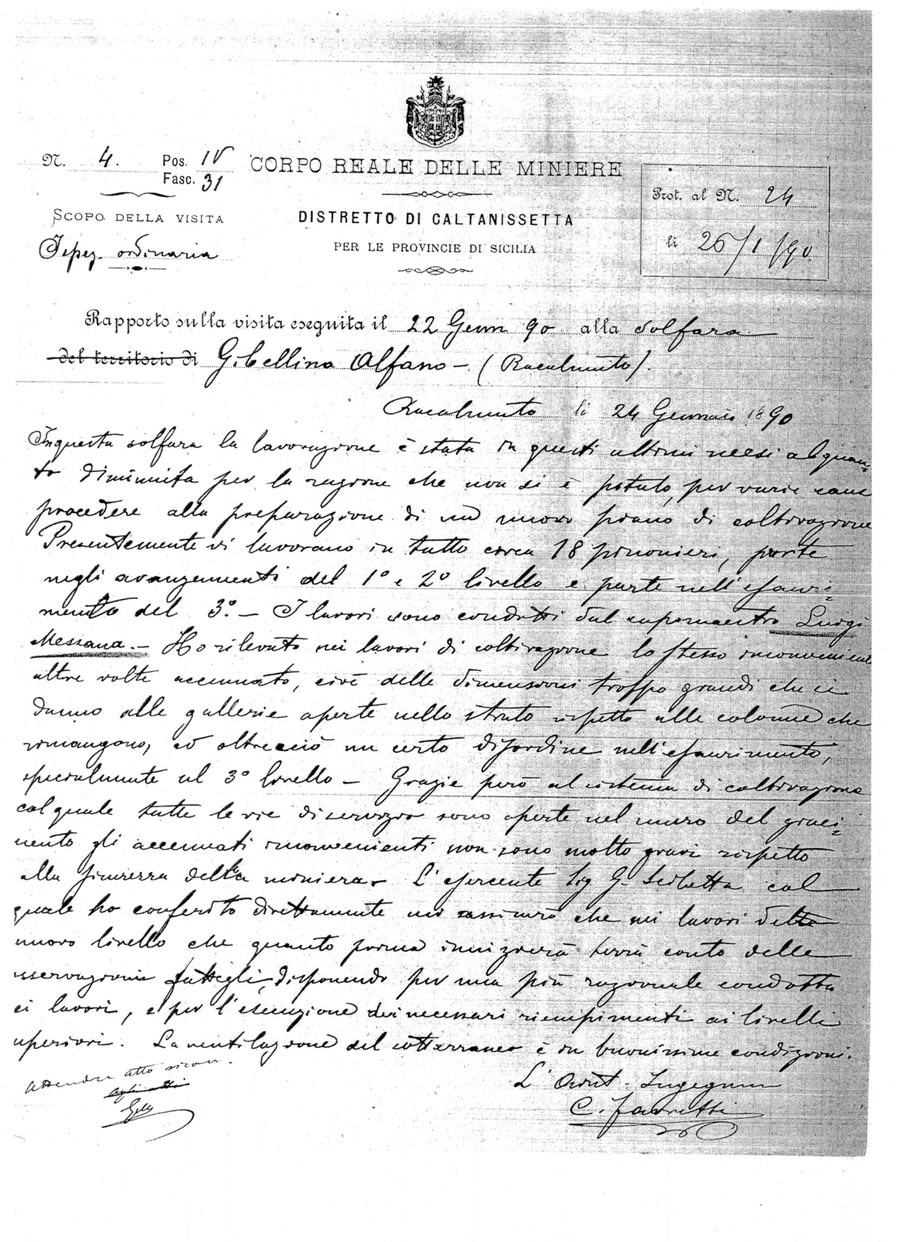 N. 4. Pos. IV
Fasc. 31
CORPO REALE DELLE MINIERE
DISTRETTO DI CALTANISSETTA
PER LE PROVINCIE DI SICILIA
SCOPO DELLA VISITA
Ispez. ordinaria
Prot. al N. 24
li 26/1/90.
Rapporto sulla visita eseguita il 22 Genn 90 alla solfara
del territorio di Gibellina Alfano - (Racalmuto).
Racalmuto li 24 Gennaio 1890
In questa solfara la lavorazione è stata in questi ultimi mesi alquan
to diminuita per la ragione che non si è potuto, per varie cause
procedere alla preparazione di un nuovo piano di coltivazione
Presentemente vi lavorano in tutto circa 18 picconieri, parte
negli avanzamenti del 1° e 2° livello e parte nell'esauri-
mento del 3°. - I lavori sono condotti dal capomaestro Luigi
Messana. - Ho rilevato nei lavori di coltivazione lo stesso inconveniente
altre volte accennato, cioè delle dimensioni troppo grandi che si
danno alle gallerie aperte nello strato rispetto alle colonne che
rimangono, ed oltracciò un certo disordine nell'esaurimento,
specialmente al 3° livello - Grazie però al sistema di coltivazione
col quale tutte le vie di servizio sono aperte nel muro del giaci-
mento gli accennati inconvenienti non sono molto gravi rispetto
alla sicurezza della miniera. L'esercente Sig G. col
quale ho conferito direttamente mi assicurò che nei lavori del
nuovo livello che quanto prima inizierà terrà conto delle
osservazioni fattegli, disponendo per una più razionale condotta
ei lavori, e per l'esecuzione dei necessari riempimenti ai livelli
uperiori. La ventilazione del sotterraneo è in buonissime condizioni.
Attendere atto
agli atti
L' Ingegnere
C.